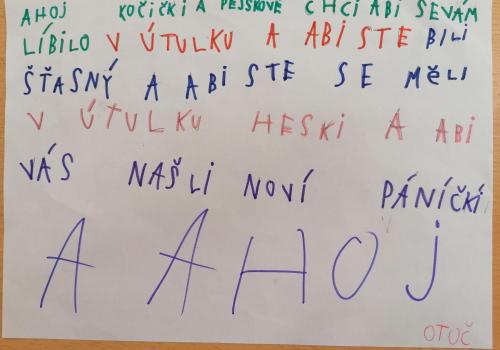 AHOJ KOČIČKI A PEJSKOVÉ CHCI ABI SEVÁM
LÍBILO V ÚTULKU A ABI STE BILI
ŠŤASNÝ A ABI STE SE MĚLI
V ÚTULKU HESKI A ABI
VÁS NAŠLI NOVÍ PÁNÍČKÍ
A AHOJ
OTOČ